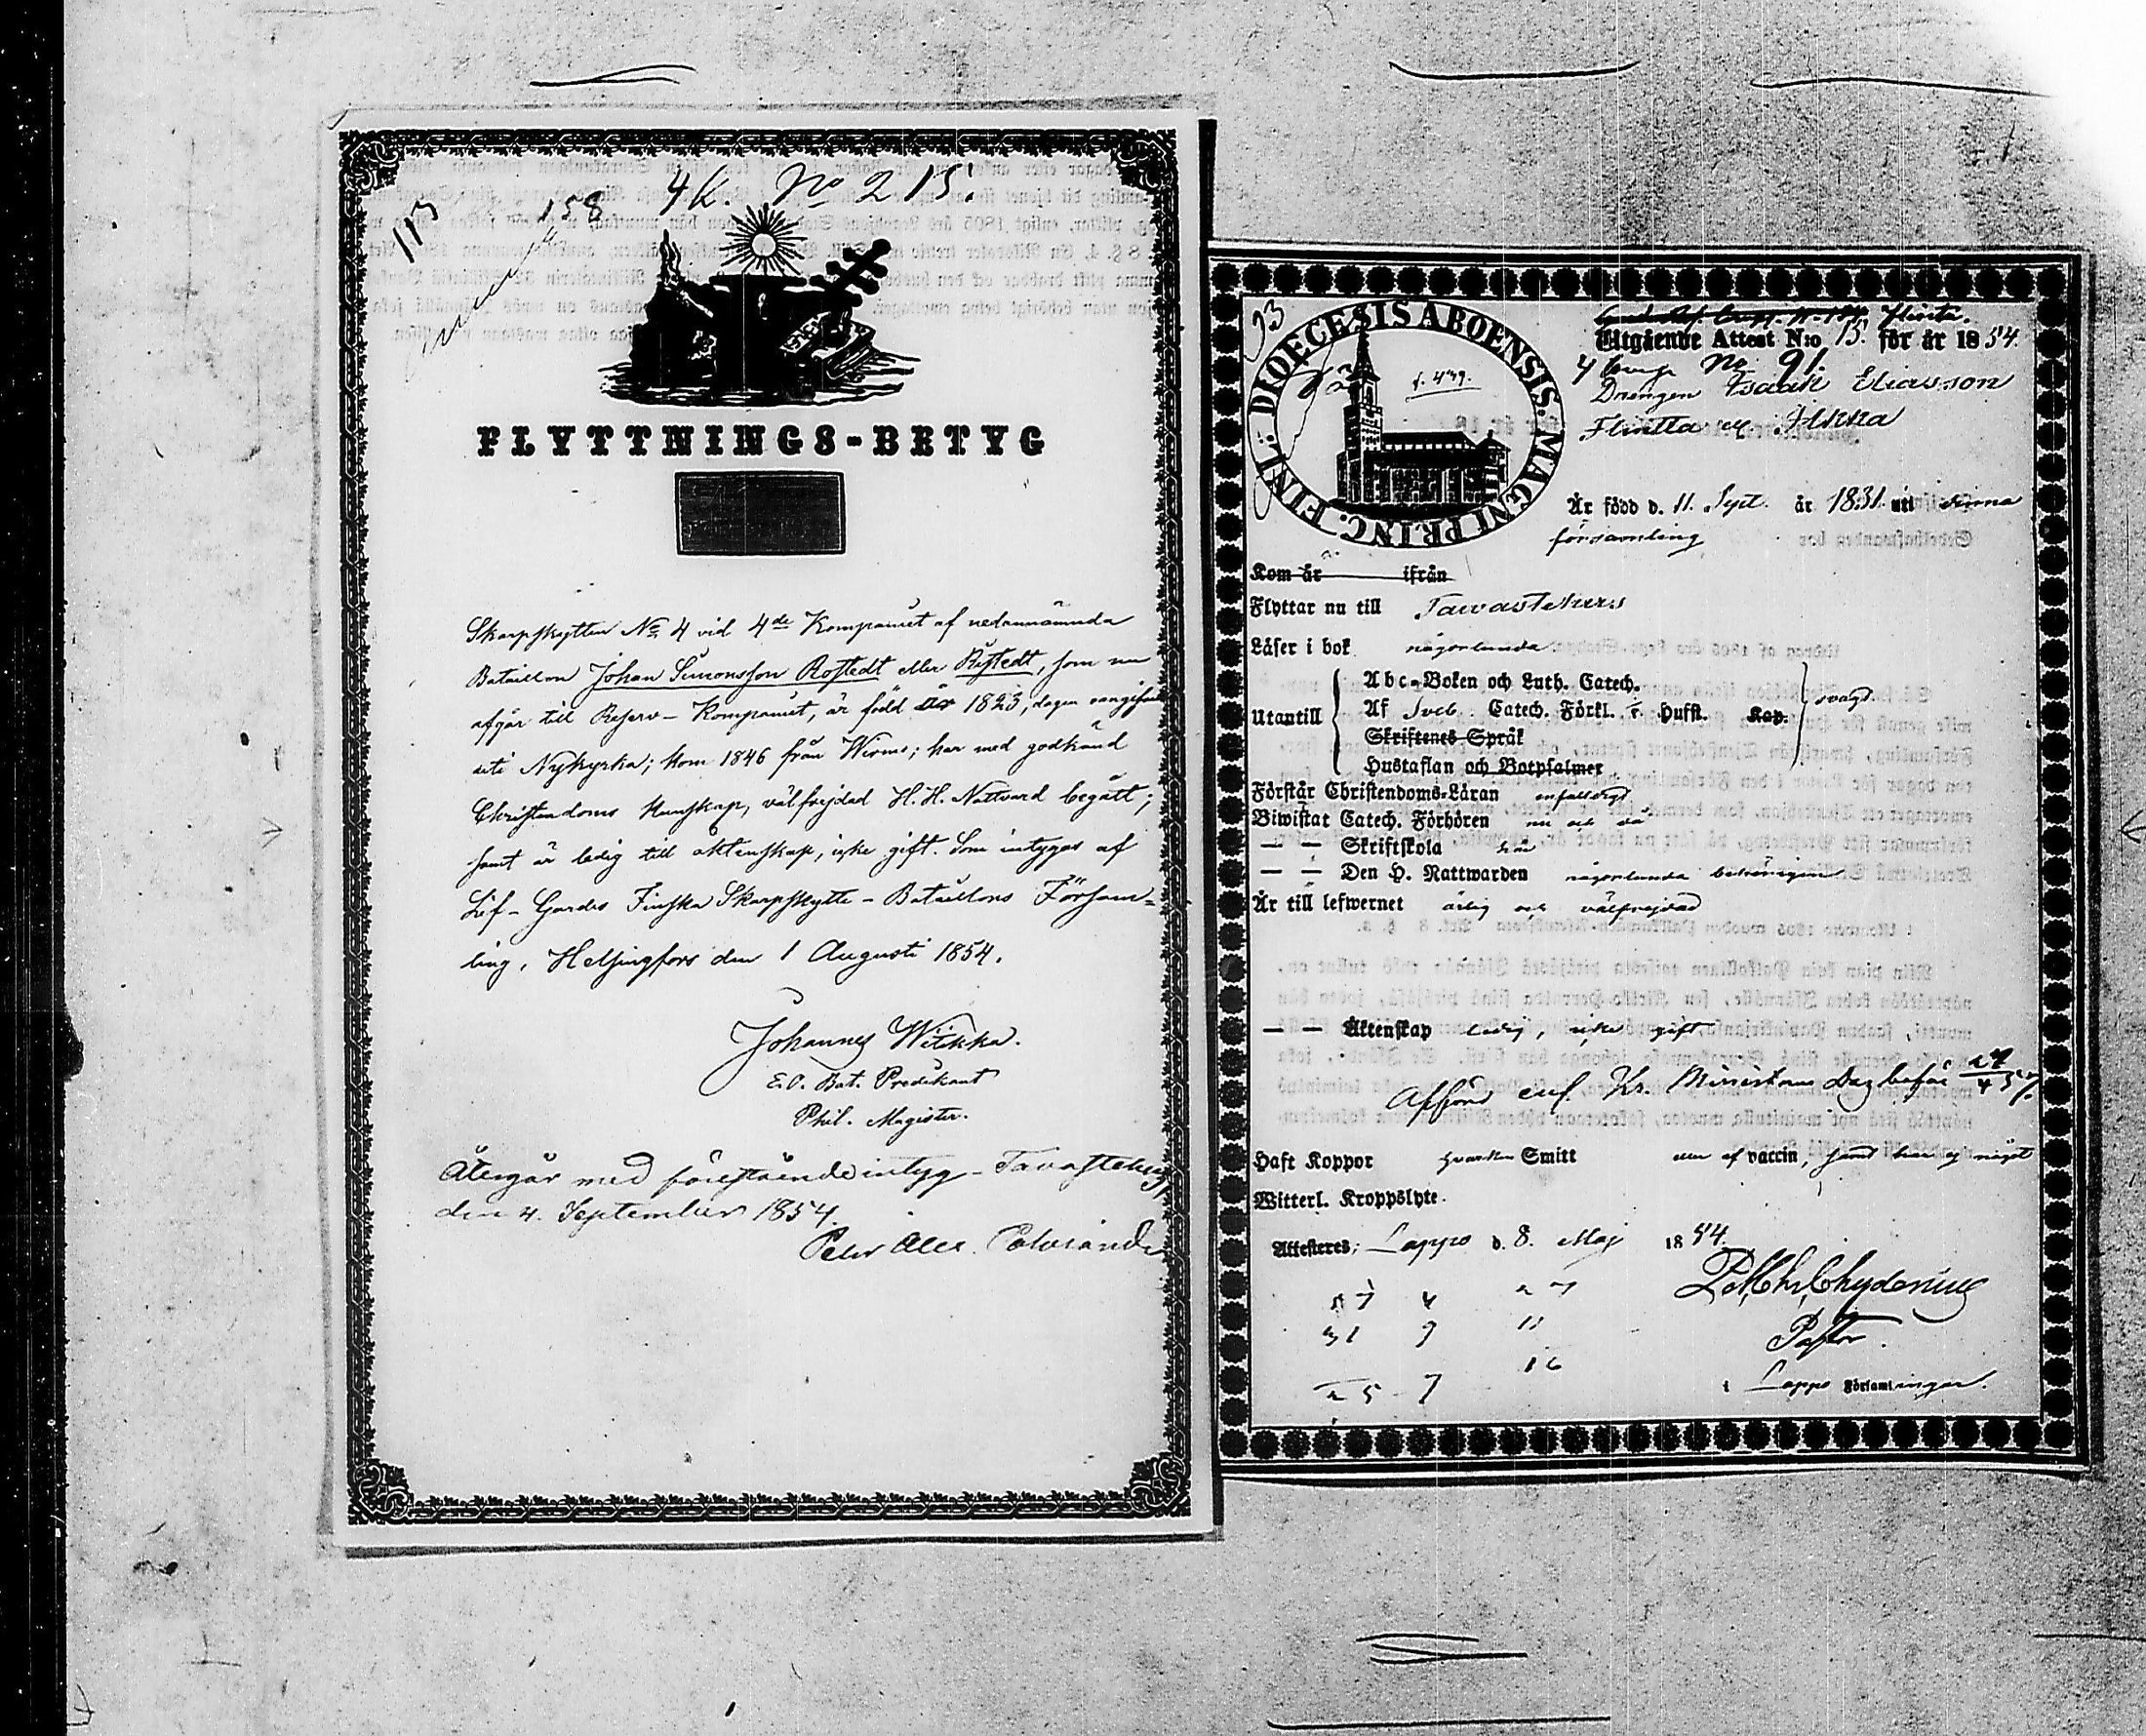 113
158
4 K. No 215.
FLYTTNINGS-BETYG
Skarpskytten No 4 vid 4de Kompaniet af nedannämnda
Bataillon Johan Simonsson Rostedt eller Ristedt, som nu
afgår till Reserv-Kompaniet, är född år 1823, dagen oangifven
uti Nykyrka; kom 1846 från Wirmo; har med godkänd
Christendoms kunskap, välfrejdad H. H. Nattvard begått;
samt är ledig till äktenskap, icke gift. Som intygas af
Lif-Gardes Finska Skarpskytte-Bataillons Försam=
ling, Helsingfors den 1 Augusti 1854.
Johannes Wiikka.
E.O. Bat. Predikant
Phil. Magister.
Återgår med föreståndeintyg - Tavastehus,
den 4. September 1854.
Petr Alex.
93
DIOECESIS ABOENSIS. MAGNI PRINC. FINL:
f. 439.
Flinta.
Utgående Attest N:o 15. för år 1854.
4 Comp No 91.
Drengen Isaak Eliasson
Flintta
Är född d. 11. Sept. år 1831. uti denna
församling
Kom år ifrån
Flyttar nu till Tawastehus
Läser i bok någorlunda
Utantill
Abc-Boken och Luth. Catech.
Af Sveb. Catech. Förkl. r. Hufst. Kap.
Skriftenes Språk
Hustaflan och Botpsalmer
svagt
Förstår Christendoms-Läran enfaldigt
Biwistat Catech. Förhören nu och då
— — Skriftskola här
— — Den H. Nattwarden någorlunda
Är till lefwernet ärlig och välfrejdad
— — Äktenskap ledig, icke gift.
Afförd enl. Kr. Ministerns Dag befäl 27/4 57.
Haft Koppor hvarken Smitt eller af vaccin, samt har ej något
Witterl. Kroppslyte.
Attesteras; Lappo d. 8. Maj 1854.
P. Chydenius
Pastor.
i Lappo Församlingar.